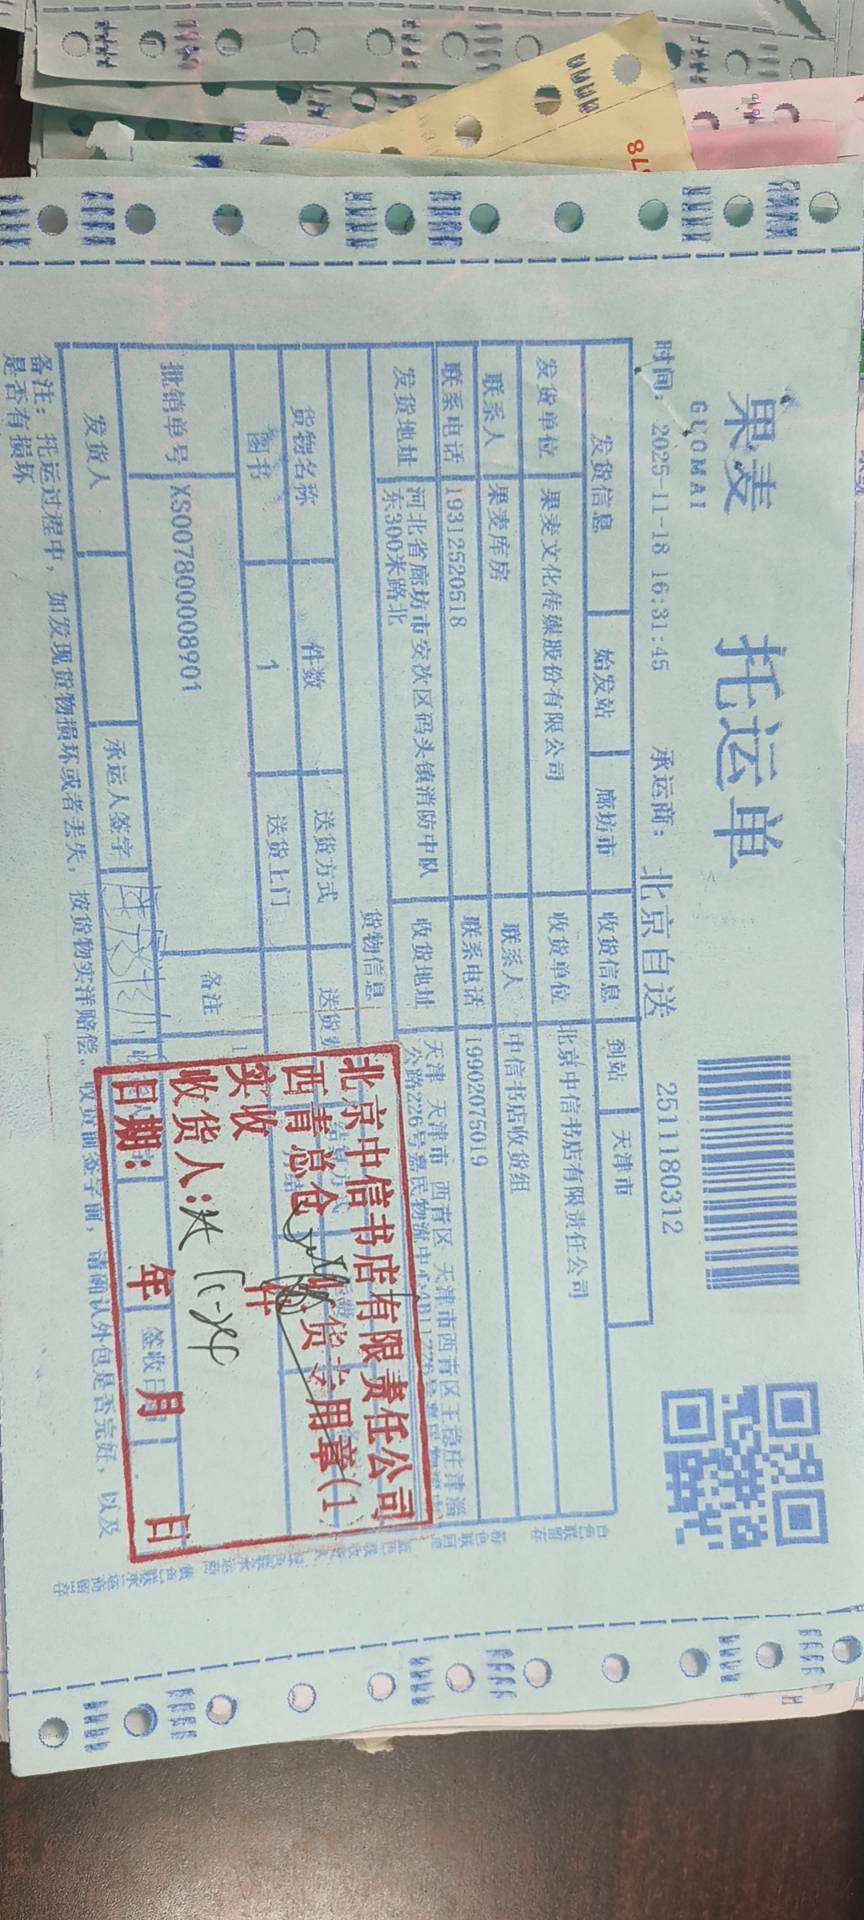 果麦
GUOMAI
托运单
时间：2025-11-18 16:31:45 承运商：北京自送 2511180312
发货信息 始发站 廊坊市 收货信息 到站 天津市
发货单位 果麦文化传媒股份有限公司 收货单位 北京中信书店有限责任公司
联系人 果麦库房 联系人 中信书店收货组
联系电话 19312520518 联系电话 19902075019
发货地址 河北省廊坊市安次区码头镇消防中队东300米路北 收货地址 天津 天津市 西青区 天津市西青区王稳庄津淄公路226号嘉民物流中心
货物信息
货物名称 件数 送货方式 送货
图书 1 送货上门
批销单号 XS007800008901 备注
发货人 承运人签字 签收日
备注：托运过程中，如发现货物损坏或者丢失，按货物实洋赔偿。收货前签字前，请确认外包是否完好，以及
是否有损坏
北京中信书店有限责任公司
西青总仓 收货专用章(1)
实收 件
收货人：
日期： 年 月 日
11-24
78